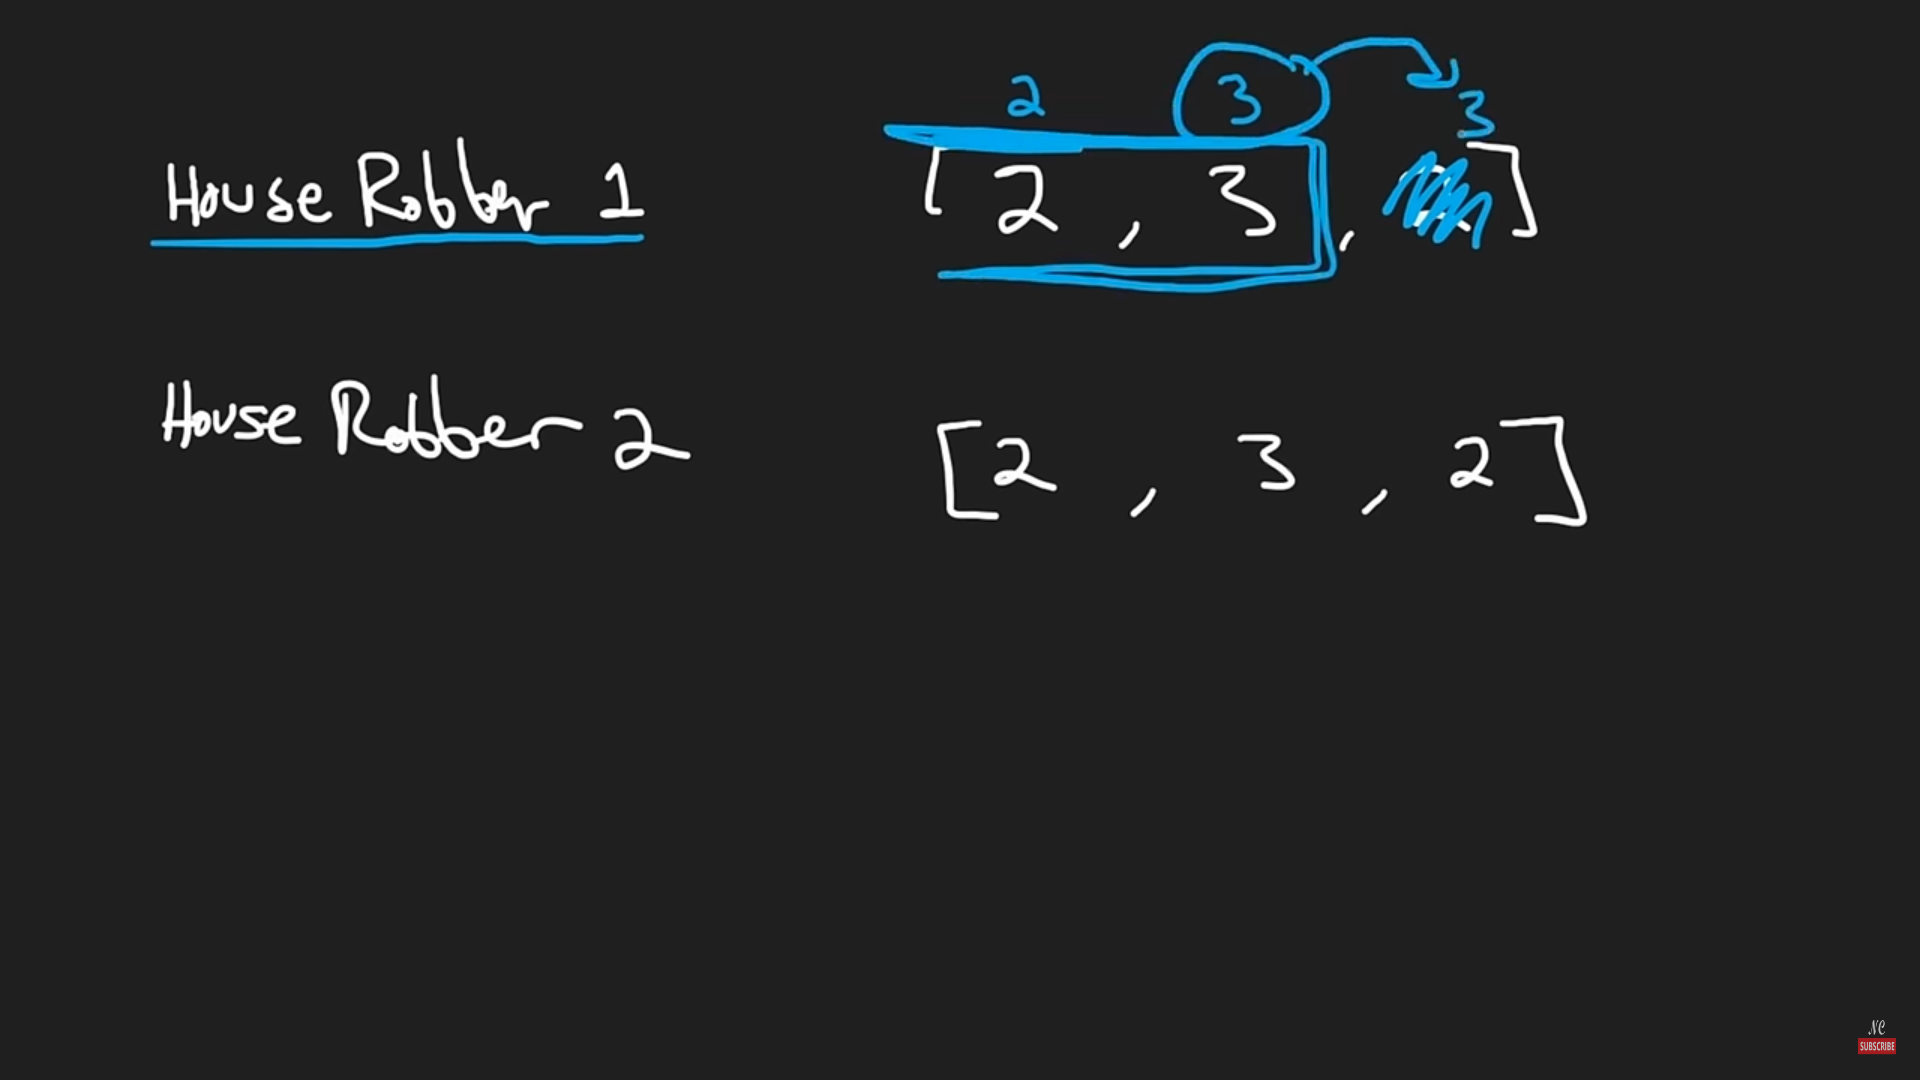 2 3 3
House Robber 1 [ 2 , 3 , ]
House Robber 2 [ 2 , 3 , 2 ]
NC
SUBSCRIBE